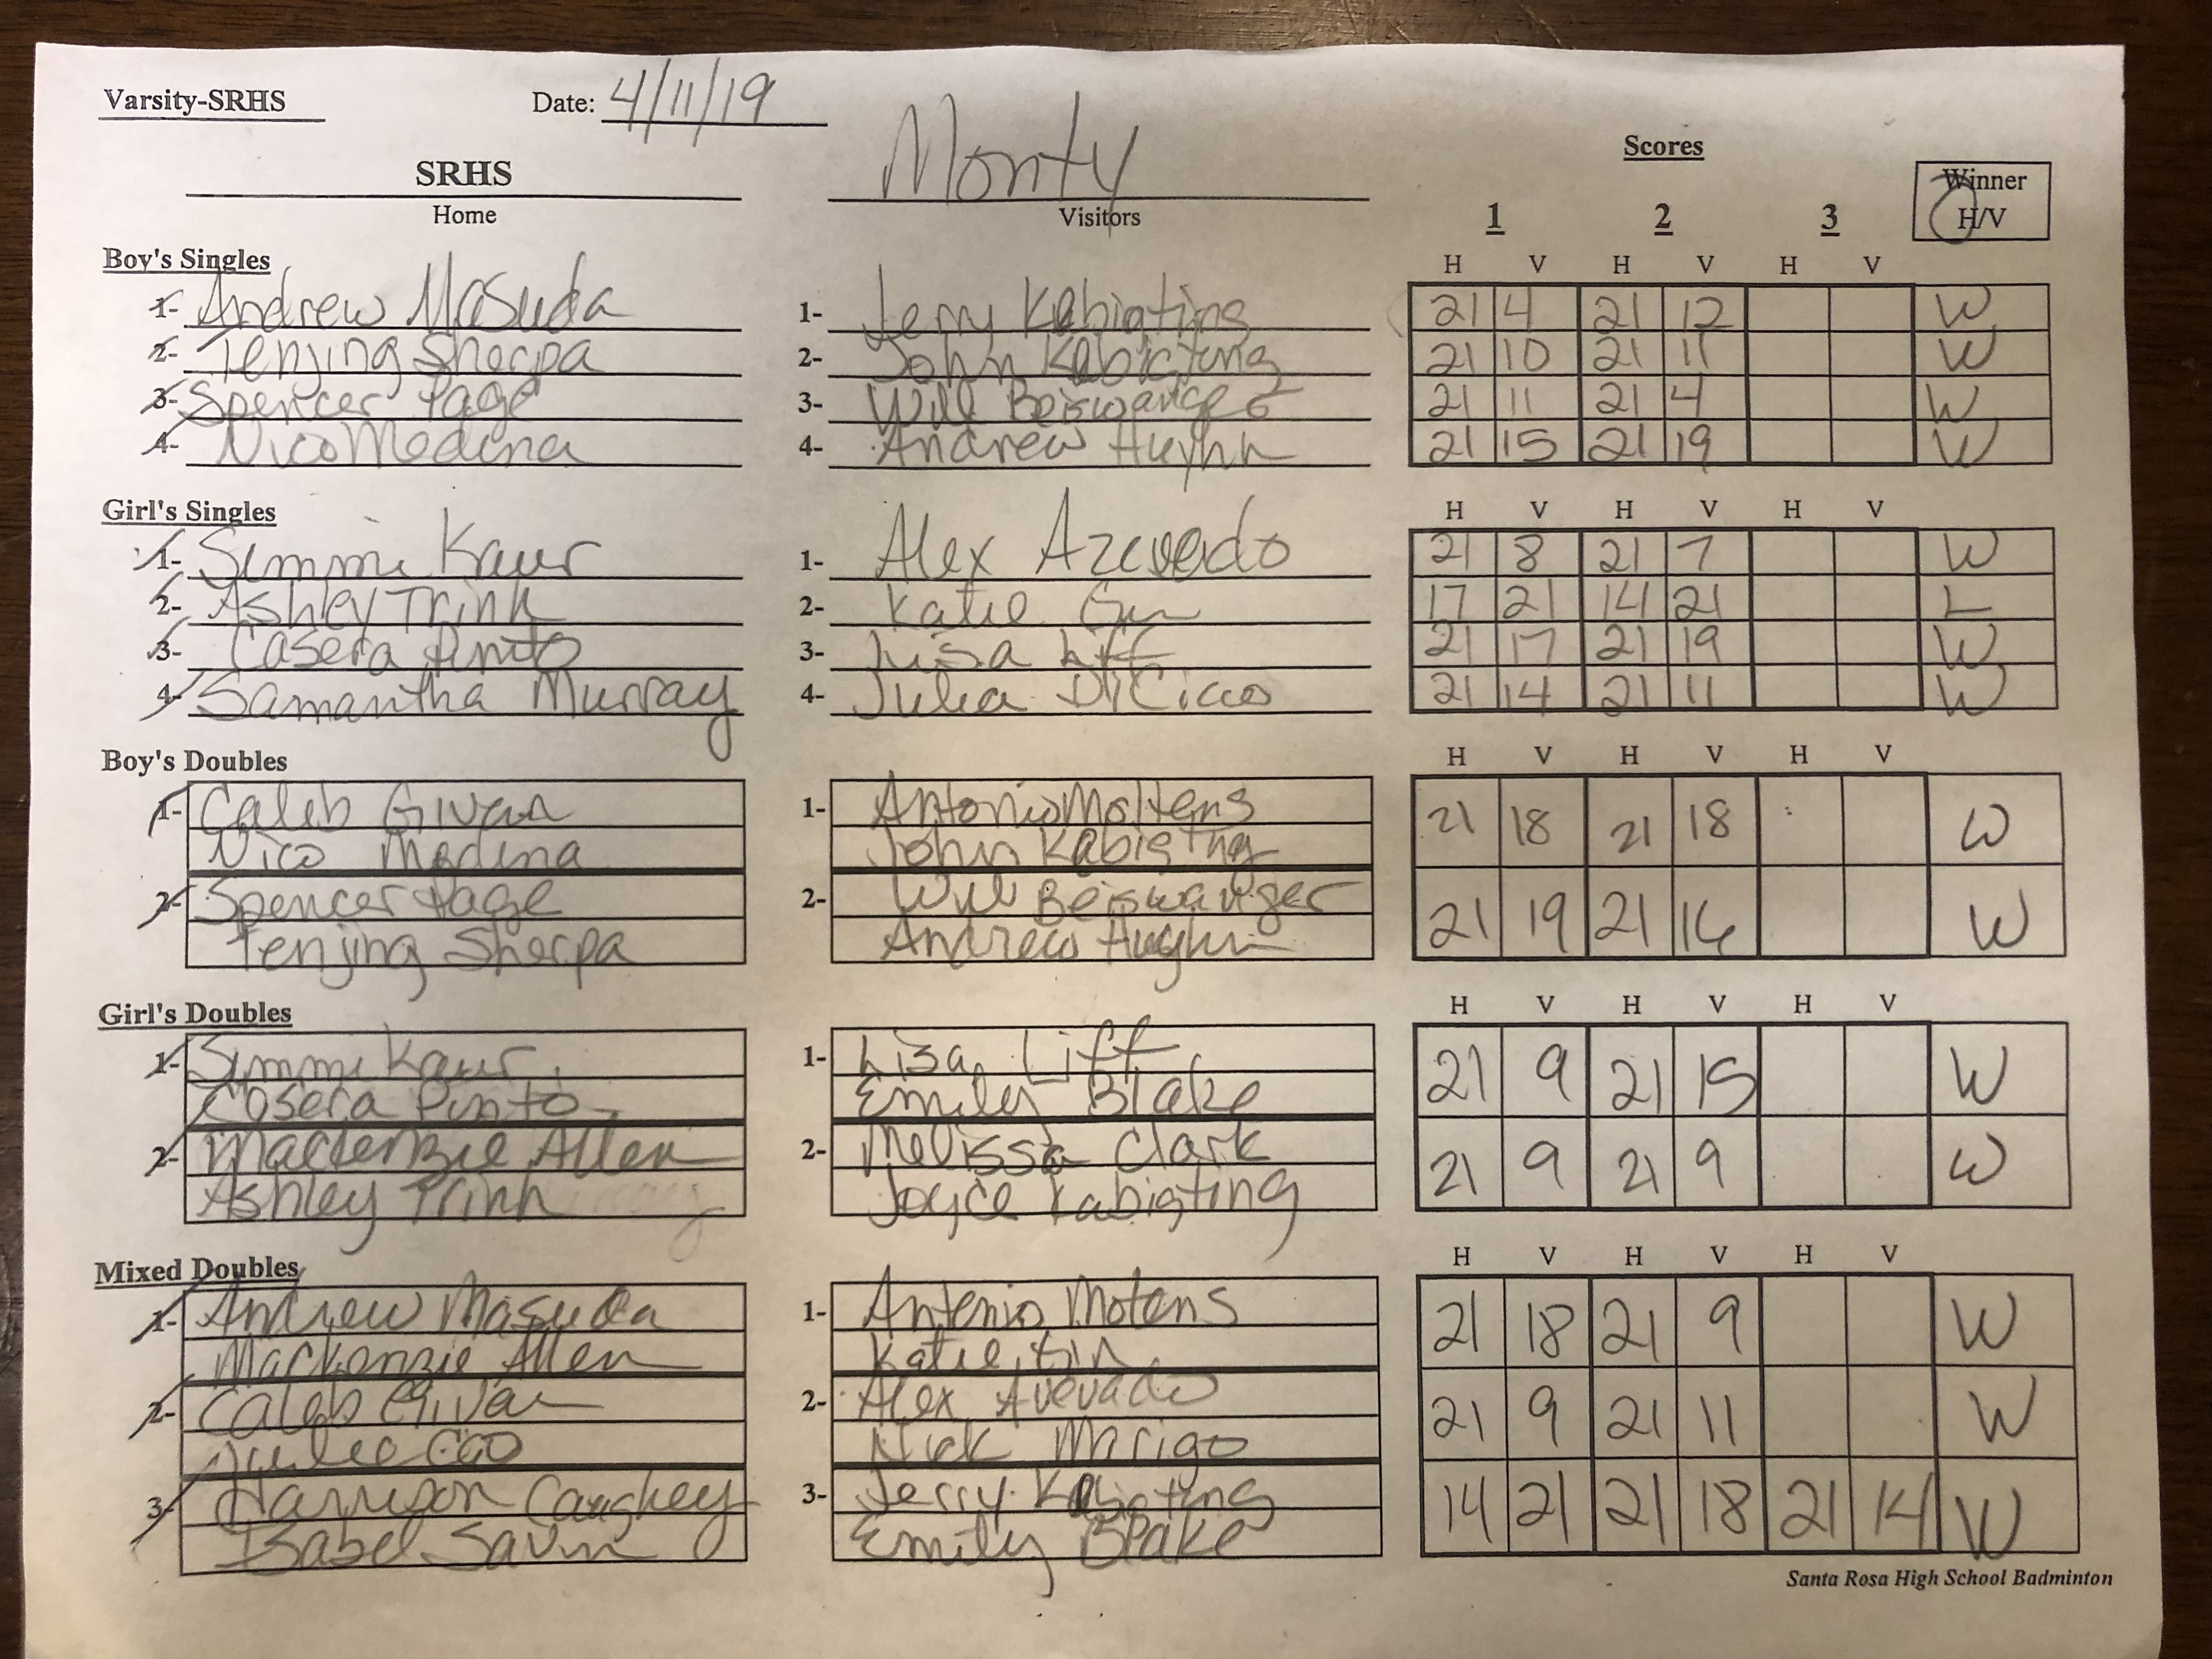 Varsity-SRHS Date: 4/11/19
SRHS Monty Scores
Home Visitors 1 2 3 Winner H/V
Boy's Singles H V H V H V
1- Andrew Masuda 1- Jerry Kabigting 21 4 21 12 W
2- Tenjing Sherpa 2- John Kabigting 21 10 21 11 W
3- Spencer Page 3- Will Beiswanger 21 11 21 4 W
4- Nico Medina 4- Andrew Huynh 21 15 21 19 W
Girl's Singles H V H V H V
1- Simmi Kaur 1- Alex Azevedo 21 8 21 7 W
2- Ashley Trinh 2- Katie 17 21 14 21 L
3- Casera Pinto 3- Lisa Liff 21 17 21 19 W
4- Samantha Murray 4- Julia DiCicco 21 14 21 11 W
Boy's Doubles H V H V H V
1- Caleb Givan 1- Antonio Moltens 21 18 21 18 W
Nico Medina John Kabigting
2- Spencer Page 2- Will Beiswanger 21 19 21 16 W
Tenjing Sherpa Andrew
Girl's Doubles H V H V H V
1- Simmi Kaur 1- Lisa Liff 21 9 21 15 W
Casera Pinto Emily Blake
2- Mackenzie Allen 2- Melissa Clark 21 9 21 9 W
Ashley Trinh Joyce Kabigting
Mixed Doubles H V H V H V
1- Andrew Masuda 1- Antonio Motens 21 18 21 9 W
Mackenzie Allen Katie
2- Caleb Givan 2- Alex 21 9 21 11 W
Cao Nick Marigo
3- Harrison Caughey 3- Jerry Kabigting 14 21 21 18 21 14 W
Isabel Savin Emily Blake
Santa Rosa High School Badminton